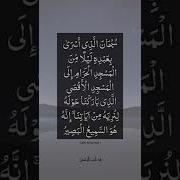 سُبْحَانَ الَّذِي أَسْرَىٰ
بِعَبْدِهِ لَيْلًا مِنَ
الْمَسْجِدِ الْحَرَامِ إِلَى
الْمَسْجِدِ الْأَقْصَى
الَّذِي بَارَكْنَا حَوْلَهُ
لِنُرِيَهُ مِنْ آيَاتِنَا إِنَّهُ
هُوَ السَّمِيعُ الْبَصِيرُ